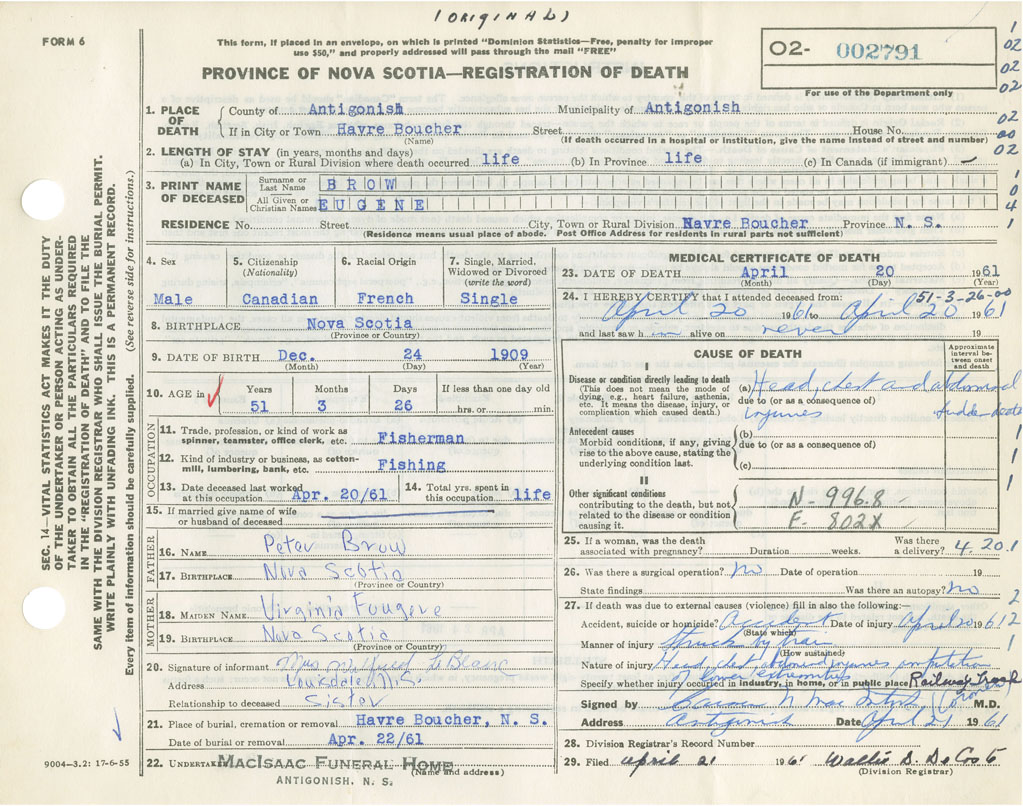 (ORIGINAL)
FORM 6
This form, if placed in an envelope, on which is printed "Dominion Statistics—Free, penalty for improper
use $50," and properly addressed will pass through the mail "FREE"
PROVINCE OF NOVA SCOTIA—REGISTRATION OF DEATH
O2- 002791
For use of the Department only
1
02
02
02
02
00
02
1
0
4
1
1. PLACE OF DEATH
County of Antigonish Municipality of Antigonish
If in City or Town Havre Boucher Street House No.
(Name) (If death occurred in a hospital or institution, give the name instead of street and number)
2. LENGTH OF STAY (in years, months and days)
(a) In City, Town or Rural Division where death occurred life (b) In Province life (c) In Canada (if immigrant) —
3. PRINT NAME OF DECEASED
Surname or Last Name BROW
All Given or Christian Names EUGENE
RESIDENCE No. Street City, Town or Rural Division Havre Boucher Province N. S.
(Residence means usual place of abode. Post Office Address for residents in rural parts not sufficient)
SEC. 14—VITAL STATISTICS ACT MAKES IT THE DUTY
OF THE UNDERTAKER OR PERSON ACTING AS UNDER-
TAKER TO OBTAIN ALL THE PARTICULARS REQUIRED
IN THE "REGISTRATION OF DEATH" AND TO FILE THE
SAME WITH THE DIVISION REGISTRAR WHO SHALL ISSUE THE BURIAL PERMIT.
WRITE PLAINLY WITH UNFADING INK. THIS IS A PERMANENT RECORD.
Every item of information should be carefully supplied. (See reverse side for instructions.)
4. Sex
Male
5. Citizenship
(Nationality)
Canadian
6. Racial Origin
French
7. Single, Married,
Widowed or Divorced
(write the word)
Single
8. BIRTHPLACE Nova Scotia
(Province or Country)
9. DATE OF BIRTH Dec. 24 1909
(Month) (Day) (Year)
10. AGE in
Years Months Days If less than one day old
51 3 26 hrs. or min.
OCCUPATION
11. Trade, profession, or kind of work as
spinner, teamster, office clerk, etc. Fisherman
12. Kind of industry or business, as cotton-
mill, lumbering, bank, etc. Fishing
13. Date deceased last worked
at this occupation Apr. 20/61
14. Total yrs. spent in
this occupation life
15. If married give name of wife
or husband of deceased
FATHER
16. NAME Peter Brow
17. BIRTHPLACE Nova Scotia
(Province or Country)
MOTHER
18. MAIDEN NAME Virginia Fougere
19. BIRTHPLACE Nova Scotia
(Province or Country)
20. Signature of informant Mrs Wilfred LeBlanc
Address Louisdale, N.S.
Relationship to deceased Sister
21. Place of burial, cremation or removal Havre Boucher, N. S.
Date of burial or removal Apr. 22/61
22. UNDERTAKER MACISAAC FUNERAL HOME
(Name and address)
ANTIGONISH, N. S.
9004—3.2: 17-6-55
MEDICAL CERTIFICATE OF DEATH
23. DATE OF DEATH April 20 1961
(Month) (Day) (Year)
24. I HEREBY CERTIFY that I attended deceased from: 51-3-26-00
April 20 1961 to April 20 1961
and last saw him alive on never 19
CAUSE OF DEATH
Approximate
interval be-
tween onset
and death
I
Disease or condition directly leading to death
(This does not mean the mode of
dying, e.g., heart failure, asthenia,
etc. It means the disease, injury, or
complication which caused death.)
(a) Head, chest and abdominal
due to (or as a consequence of)
injuries
Antecedent causes
Morbid conditions, if any, giving
rise to the above cause, stating the
underlying condition last.
(b)
due to (or as a consequence of)
(c)
II
Other significant conditions
contributing to the death, but not
related to the disease or condition
causing it.
N- 996.8
E- 802X
1
1
1
25. If a woman, was the death
associated with pregnancy? Duration weeks.
Was there
a delivery? 4.20.1
26. Was there a surgical operation? No Date of operation 19
State findings Was there an autopsy? No
2
27. If death was due to external causes (violence) fill in also the following:—
Accident, suicide or homicide? Accident Date of injury April 20 1961 2
(State which)
Manner of injury Struck by train 1
(How sustained)
Nature of injury Head, chest abdomed injuries amputation
of lower extremities
Specify whether injury occurred in industry, in home, or in public place Railway Track
Signed by Coroner M.D.
Address Antigonish Date April 21 1961
28. Division Registrar's Record Number
29. Filed April 21 1961 Wallis D. DeCoste
(Division Registrar)